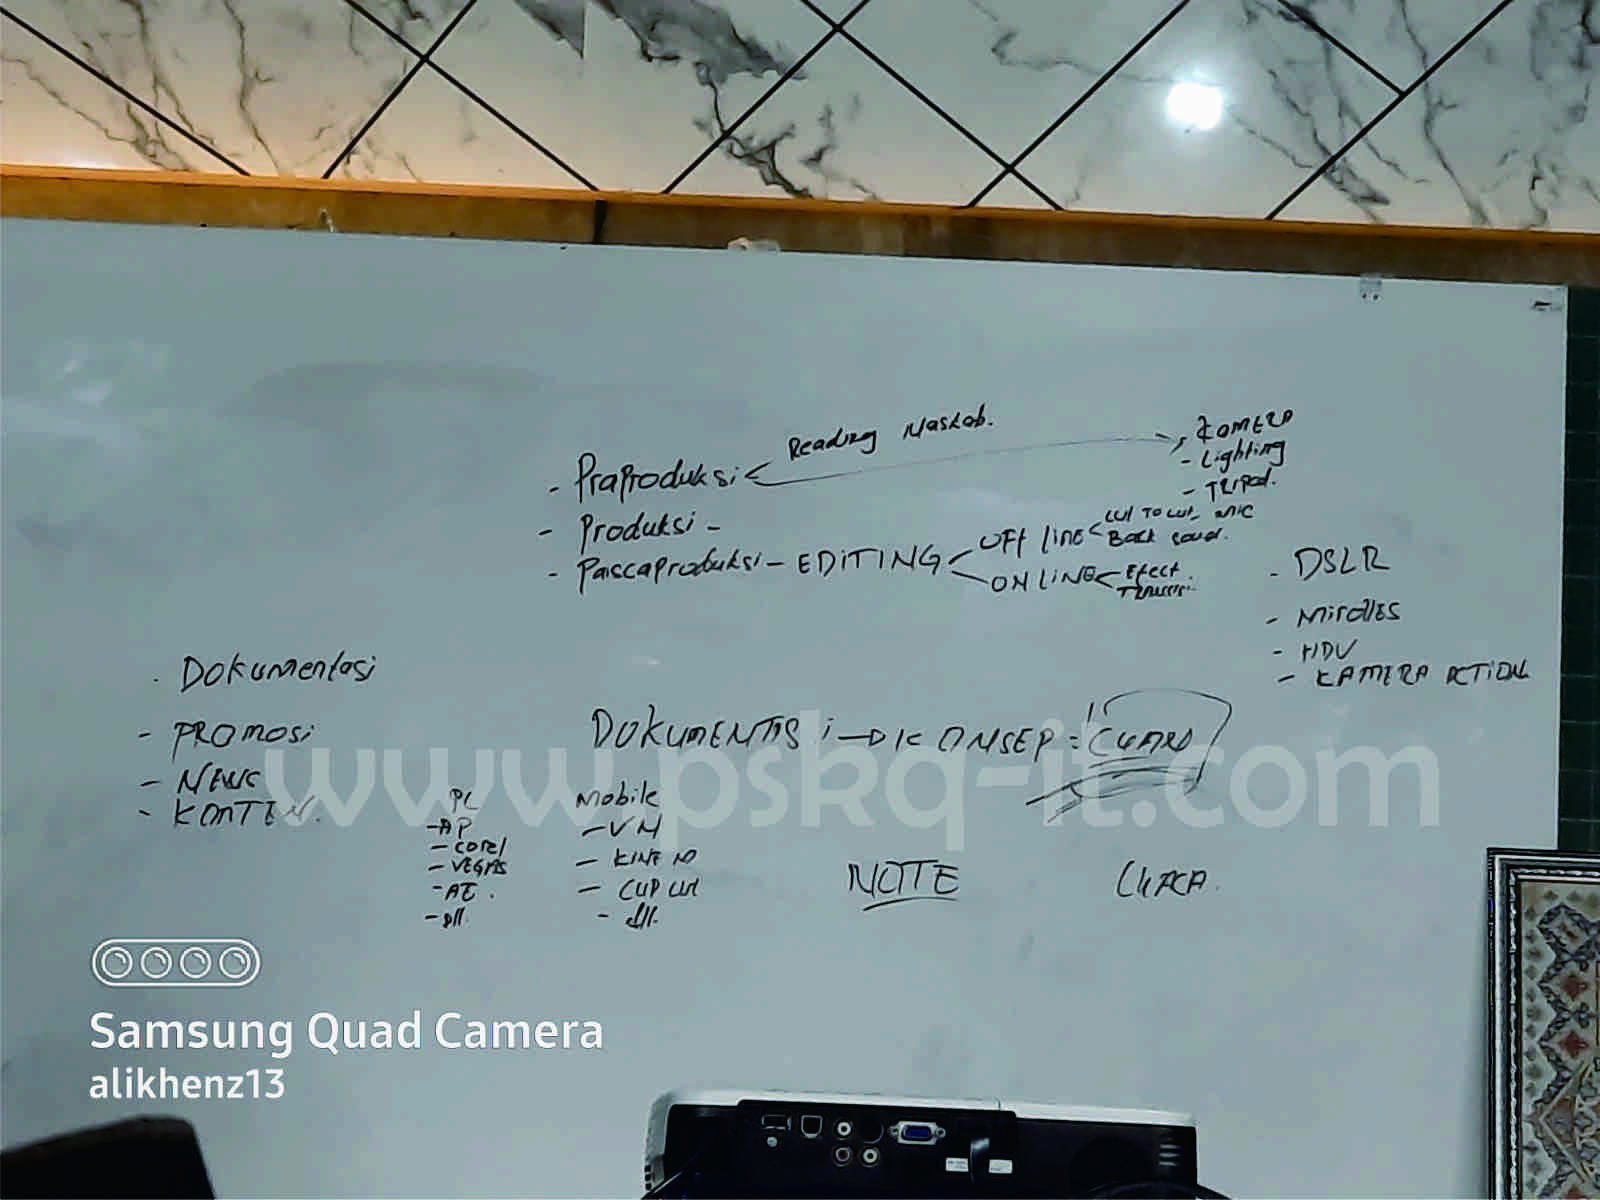 - PraProduksi < Reading Naskah.
- KAMERA
- Lighting
- TRIPOD.
- Produksi -
- PascaProduksi - EDITING
OFF LINE < CUT TO CUT
Back sound.
ON LINE < Efect
Transisi.
- DSLR
- Mirolles
- HDV
- KAMERA ACTION
- Dokumentasi
- PROMOSI
- NEWS
- KONTEN.
DOKUMENTASI → KONSEP :
www.pskq-it.com
PC
- AP
- corel
- VEGAS
- AE.
- dll.
Mobile
- VN
- KINE
- CUP CUT
- dll.
NOTE
Samsung Quad Camera
alikhenz13